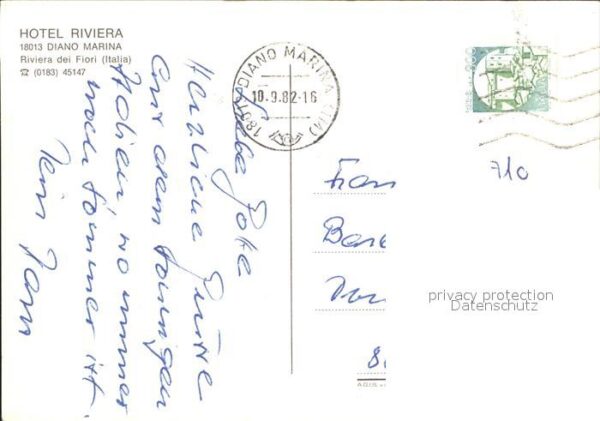 HOTEL RIVIERA
18013 DIANO MARINA
Riviera dei Fiori (Italia)
☎ (0183) 45147
18013 DIANO MARINA (IM)
10.9.82-16
710
Liebe Gote
Herzliche Grüße
aus dem sonnigen
Italien, wo immer
noch Sommer ist.
Dein
Fran
privacy protection
Datenschutz
8